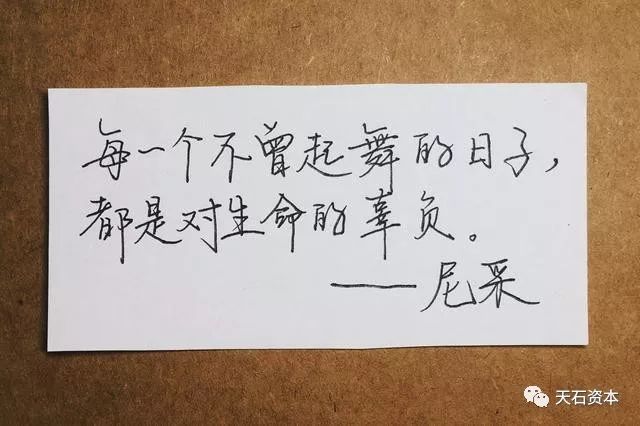 每一个不曾起舞的日子，
都是对生命的辜负。
——尼采
天石资本